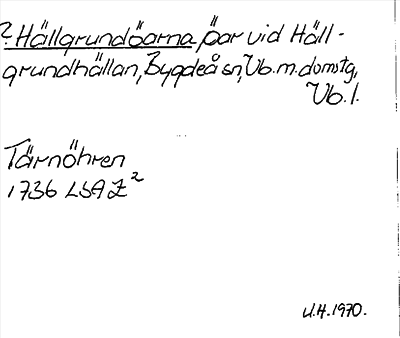 ? Hällgrundöarna, öar vid Häll-
grundhällan, Bygdeå sn, Vb. m. domstg,
Vb. l.
Tärnöhren
1736 LSA Z²
U.H. 1970.